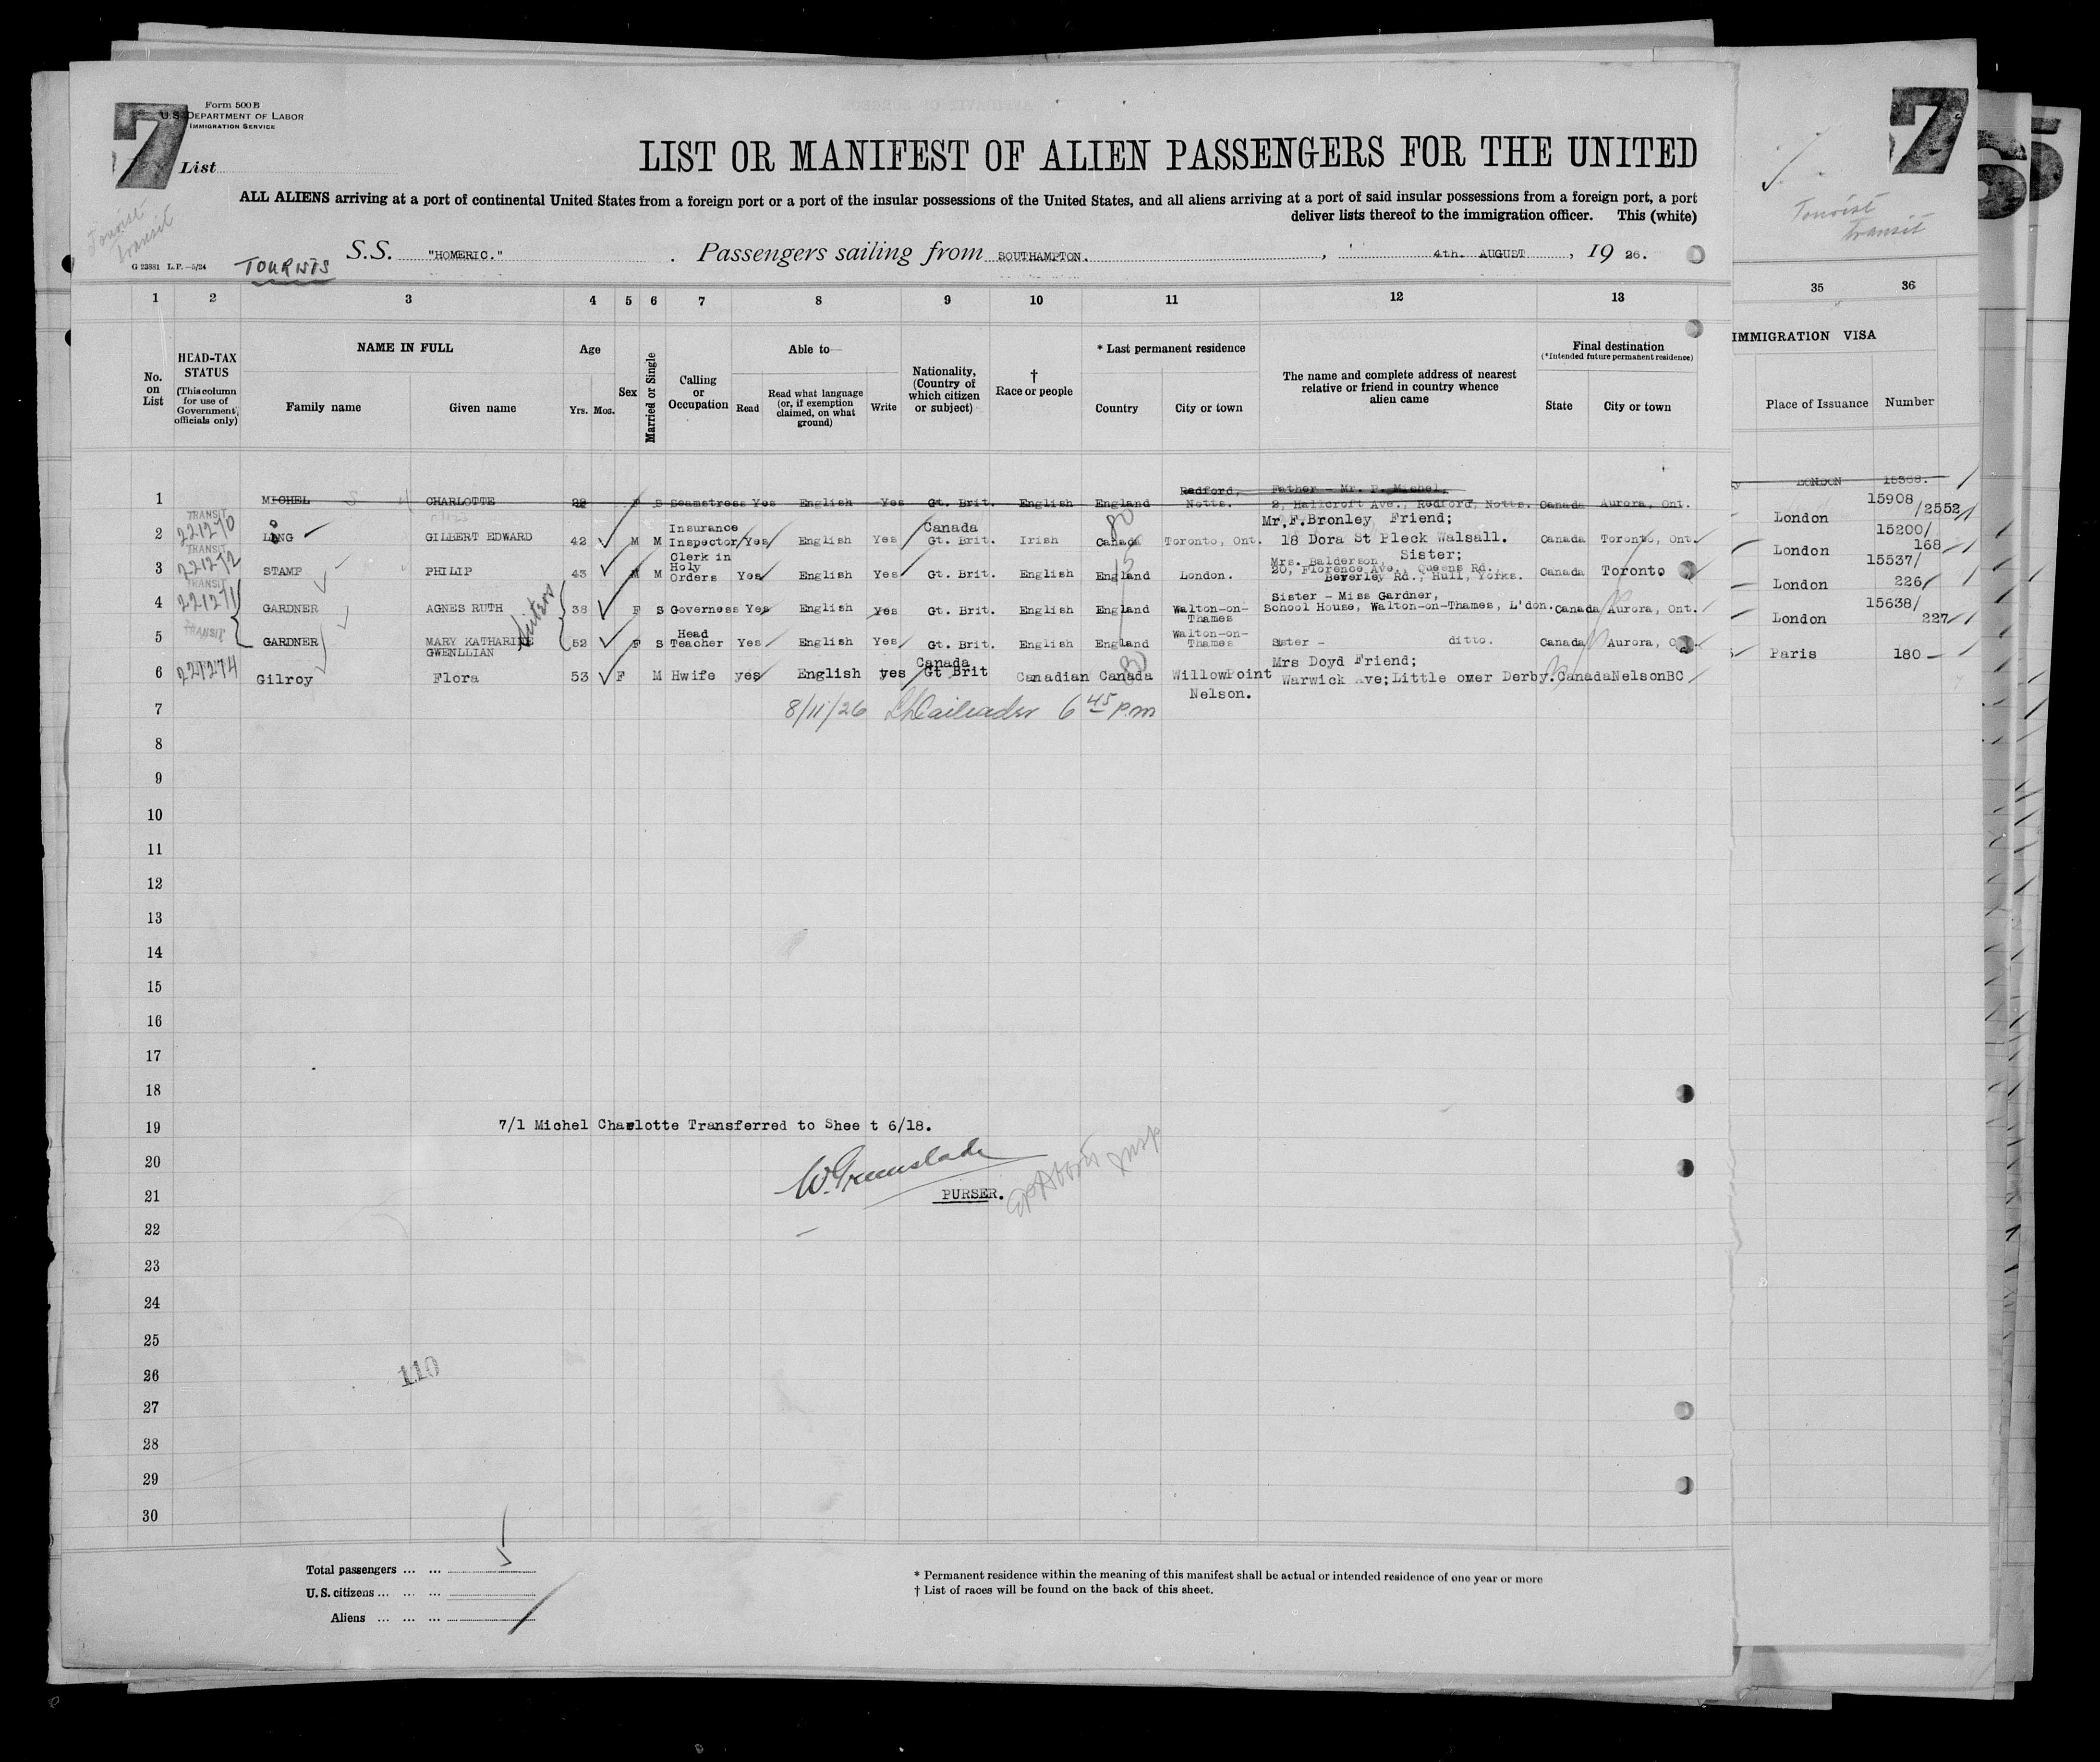 7
Form 500 B
U.S. DEPARTMENT OF LABOR
IMMIGRATION SERVICE
List
LIST OR MANIFEST OF ALIEN PASSENGERS FOR THE UNITED
ALL ALIENS arriving at a port of continental United States from a foreign port or a port of the insular possessions of the United States, and all aliens arriving at a port of said insular possessions from a foreign port, a port
deliver lists thereof to the immigration officer. This (white)
Tourist
transit
G 23881 L.P.—5/24
TOURISTS
S.S. "HOMERIC." Passengers sailing from SOUTHAMPTON. , 4th. AUGUST , 19 26.
7
6
5
Tourist
transit
1 2 3 4 5 6 7 8 9 10 11 12 13 35 36
No. on List
HEAD-TAX STATUS (This column for use of Government officials only)
NAME IN FULL
Family name Given name
Age
Yrs. Mos.
Sex
Married or Single
Calling or Occupation
Able to—
Read Read what language (or, if exemption claimed, on what ground) Write
Nationality, (Country of which citizen or subject)
† Race or people
* Last permanent residence
Country City or town
The name and complete address of nearest relative or friend in country whence alien came
Final destination
(*Intended future permanent residence)
State City or town
IMMIGRATION VISA
Place of Issuance Number
Redford, Father - Mr. P. Michel,
1 MICHEL CHARLOTTE 22 F S Seamstress Yes English Yes Gt. Brit. English England Notts. 2, Hallcroft Ave., Redford, Notts. Canada Aurora, Ont. LONDON 15368.
TRANSIT Insurance Canada Mr. F. Bronley Friend; 15908
2 221270 LONG GILBERT EDWARD 42 M M Inspector Yes English Yes Gt. Brit. Irish Canada Toronto, Ont. 18 Dora St Pleck Walsall. Canada Toronto, Ont. London /2552
TRANSIT Clerk in Mrs. Balderson, Sister; 15200/
3 221272 STAMP PHILIP 43 M M Holy Orders Yes English Yes Gt. Brit. English England London. 20, Florence Ave., Queens Rd., Beverley Rd., Hull, Yorks. Canada Toronto London 168
TRANSIT Sister - Miss Gardner, 15537/
4 221271 GARDNER AGNES RUTH Sisters 38 F S Governess Yes English yes Gt. Brit. English England Walton-on-Thames School House, Walton-on-Thames, L'don. Canada Aurora, Ont. London 226
TRANSIT Head Walton-on- 15638/
5 GARDNER MARY KATHARINE GWENLLIAN 52 F S Teacher Yes English Yes Gt. Brit. English England Thames Sister - ditto. Canada Aurora, London 227
Canada Mrs Doyd Friend;
6 221274 Gilroy Flora 53 F M Hwife yes English yes Gt Brit Canadian Canada WillowPoint Nelson. Warwick Ave;Little over Derby. Canada NelsonBC Paris 180
80
15
80
7 8/11/26 6 45 P.m
8
9
10
11
12
13
14
15
16
17
18
19 7/1 Michel Charlotte Transferred to Shee t 6/18.
20 W. Greenslade
21 PURSER.
22
23
24
25
26 110
27
28
29
30
Total passengers ... ... 5
U.S. citizens ... ... ...
Aliens ... ... ...
* Permanent residence within the meaning of this manifest shall be actual or intended residence of one year or more
† List of races will be found on the back of this sheet.